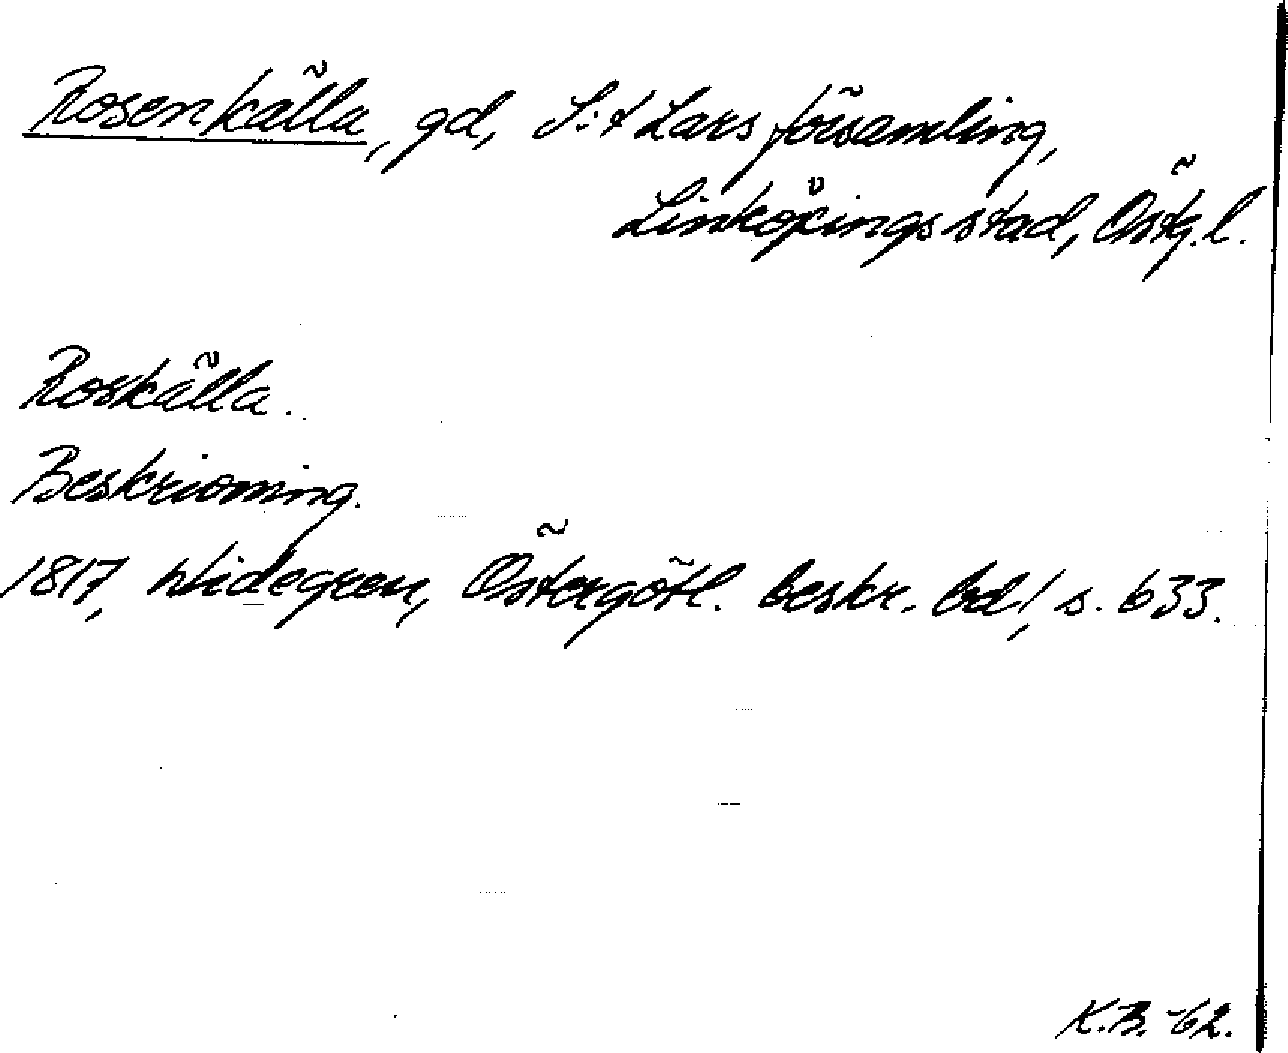 Rosenkälla, gd, S:t Lars församling,
Linköpings stad, Östg.l.
Roskälla.
Beskrivning.
1817, Widegren, Östergötl. beskr. bd 1, s. 633.
K.B. -62.